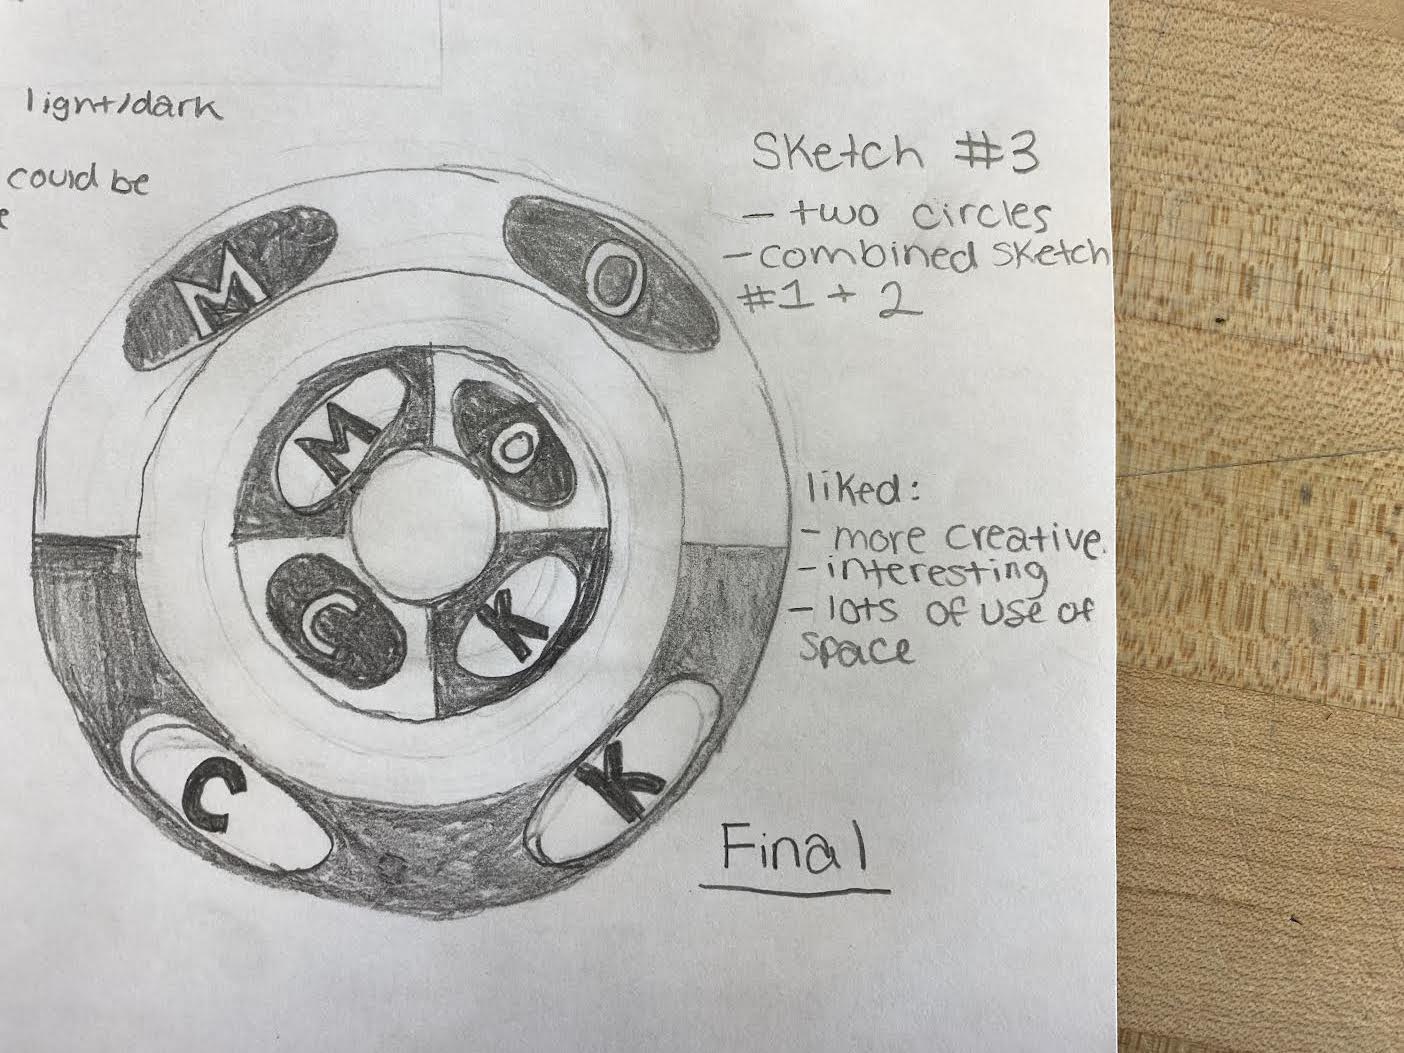 light/dark
could be
Sketch #3
- two circles
- combined sketch
#1 + 2
M O
M O
C K
C K
liked:
- more creative.
- interesting
- lots of use of
space
Final